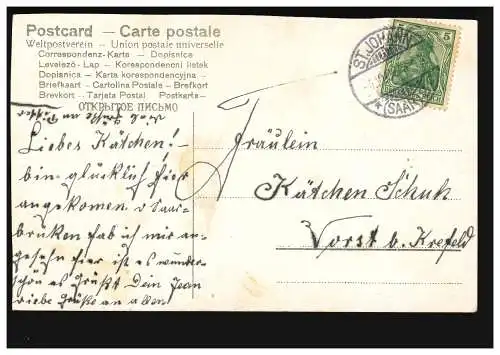 Postcard — Carte postale
Weltpostverein - Union postale universelle
Correspondenz-Karte - Dopisnica
Levelező-Lap - Korespondencni listek
Dopisnica - Karta korespondencyjna -
Briefkaart - Cartolina Postale - Brefkort
Brevkort - Tarjeta Postal Postkarte -
ОТКРЫТОЕ ПИСЬМО
Liebes Kätchen!
bin glücklich hier
angekommen Saar-
brüken hab ich mir an-
gesehn hier ist es wunder-
schön es grüßt Dein Jean
viele Grüße an allen
ST. JOHANN
(SAAR)
5
Fräulein
Kätchen Schuh
Vorst b. Krefeld